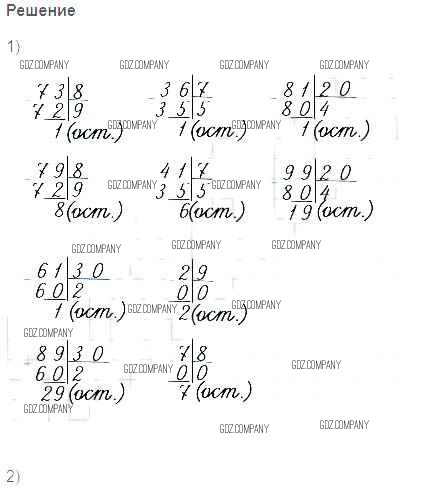 Решение
1)
GDZ.COMPANY GDZ.COMPANY GDZ.COMPANY
73|8 36|7 81|20
72|9 35|5 80|4
1(ост.) GDZ.COMPANY 1(ост.) GDZ.COMPANY 1(ост.)
79|8 41|7 99|20
72|9 GDZ.COMPANY 35|5 GDZ.COMPANY 80|4
8(ост.) 6(ост.) 19(ост.)
GDZ.COMPANY GDZ.COMPANY
61|30 2|9
60|2 0|0
1(ост.) GDZ.COMPANY 2(ост.) GDZ.COMPANY
GDZ.COMPANY
89|30 7|8
60|2 GDZ.COMPANY 0|0 GDZ.COMPANY
29(ост.) 7(ост.)
GDZ.COMPANY
GDZ.COMPANY GDZ.COMPANY
2)